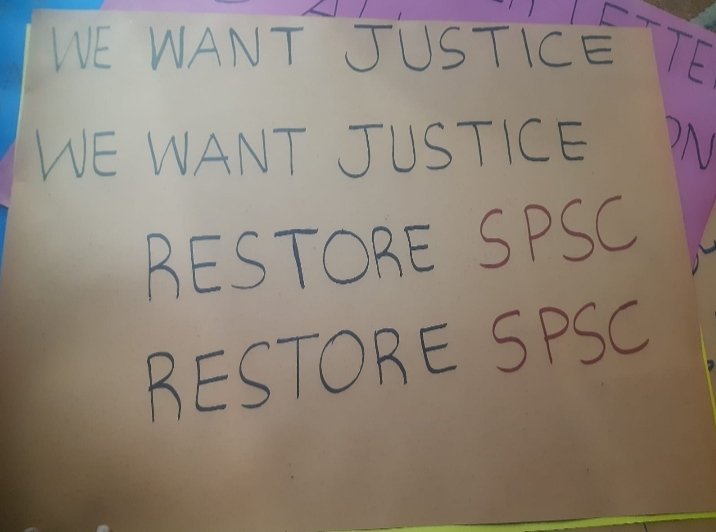 WE WANT JUSTICE
WE WANT JUSTICE
RESTORE SPSC
RESTORE SPSC